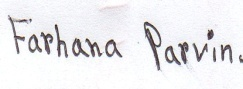 Farhana Parvin.